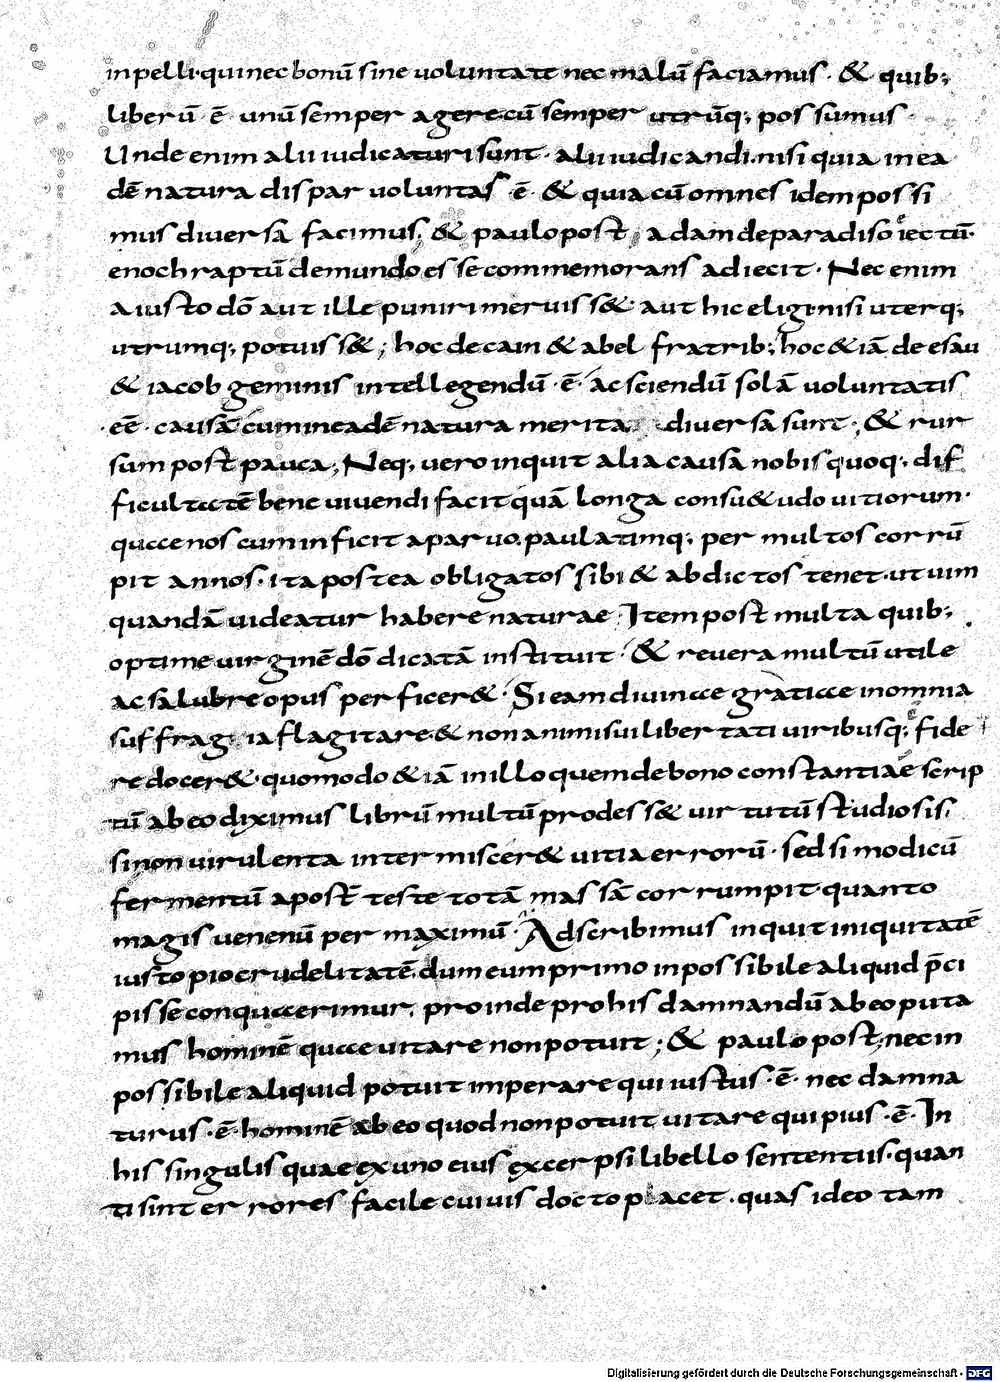 inpelli·quinec bonū sine voluntate nec malū faciamus · & quib;
liberū · ē · unū semper agere cū semper utrūq; possumus ·
Unde enim alii iudicaturi sunt · alii iudicandi· nisi quia in ea
dē natura dispar voluntas · ē · & quia cū omnes idem possi
mus diuersā facimus; & paulo post; adam de paradiso iectū·
enoch raptū de mundo esse commemorans adiecit · Nec enim
a iusto dō aut ille puniri meruiss& aut hic eligi nisi uterq;
utrumq; potuiss&; hoc de cain & abel fratrib; hoc & iā de esau
& iacob geminis intellegendū · ē · ac sciendū solā voluntatis
· eē · causā cum in eadē natura merita diuersa sunt ; & rur
sum post pauca; Neq; uero inquit alia causa nobis quoq; dif
ficultatē bene uiuendi facit quā longa consu&udo uitiorum·
quae nos cum inficit a paruo, paulatimq; per multos corrū
pit annos· ita postea obligatos sibi & abdictos tenet· ut uim
quandā uideatur habere naturae Item post multa quib;
optime uirginē dō dicatā instituit · & reuera multū utile
ac salubre opus perficer& · Si eam diuinae gratiae in omnia
suffragia flagitare & non animi sui libertati uiribusq; fide
re docer&· quomodo & iā in illo quem de bono constantiae scrip
tū ab eo diximus librū multū prodess& uirtutū studiosis,
si non uirulenta intermiscer& uitia errorū · sed si modicū
fermentū apost̄ teste totā massā corrumpit· quanto
magis uenenū per maximū · Adscribimus inquit iniquitatē
iusto pio crudelitatē, dum eum primo inpossibile aliquid p̄ci
pisse conquaerimur, proinde pro his damnandū ab eo puta
mus hominē quae uitare non potuit ; & paulo post; nec in
possibile aliquid potuit imperare qui iustus · ē · nec damna
turus · ē · hominē ab eo quod non potuit uitare qui pius · ē · In
his singulis quae ex uno eius excerpsi libello sententiis· quan
ti sint errores facile cuiuis docto placet · quas ideo tam
Digitalisierung gefördert durch die Deutsche Forschungsgemeinschaft - DFG